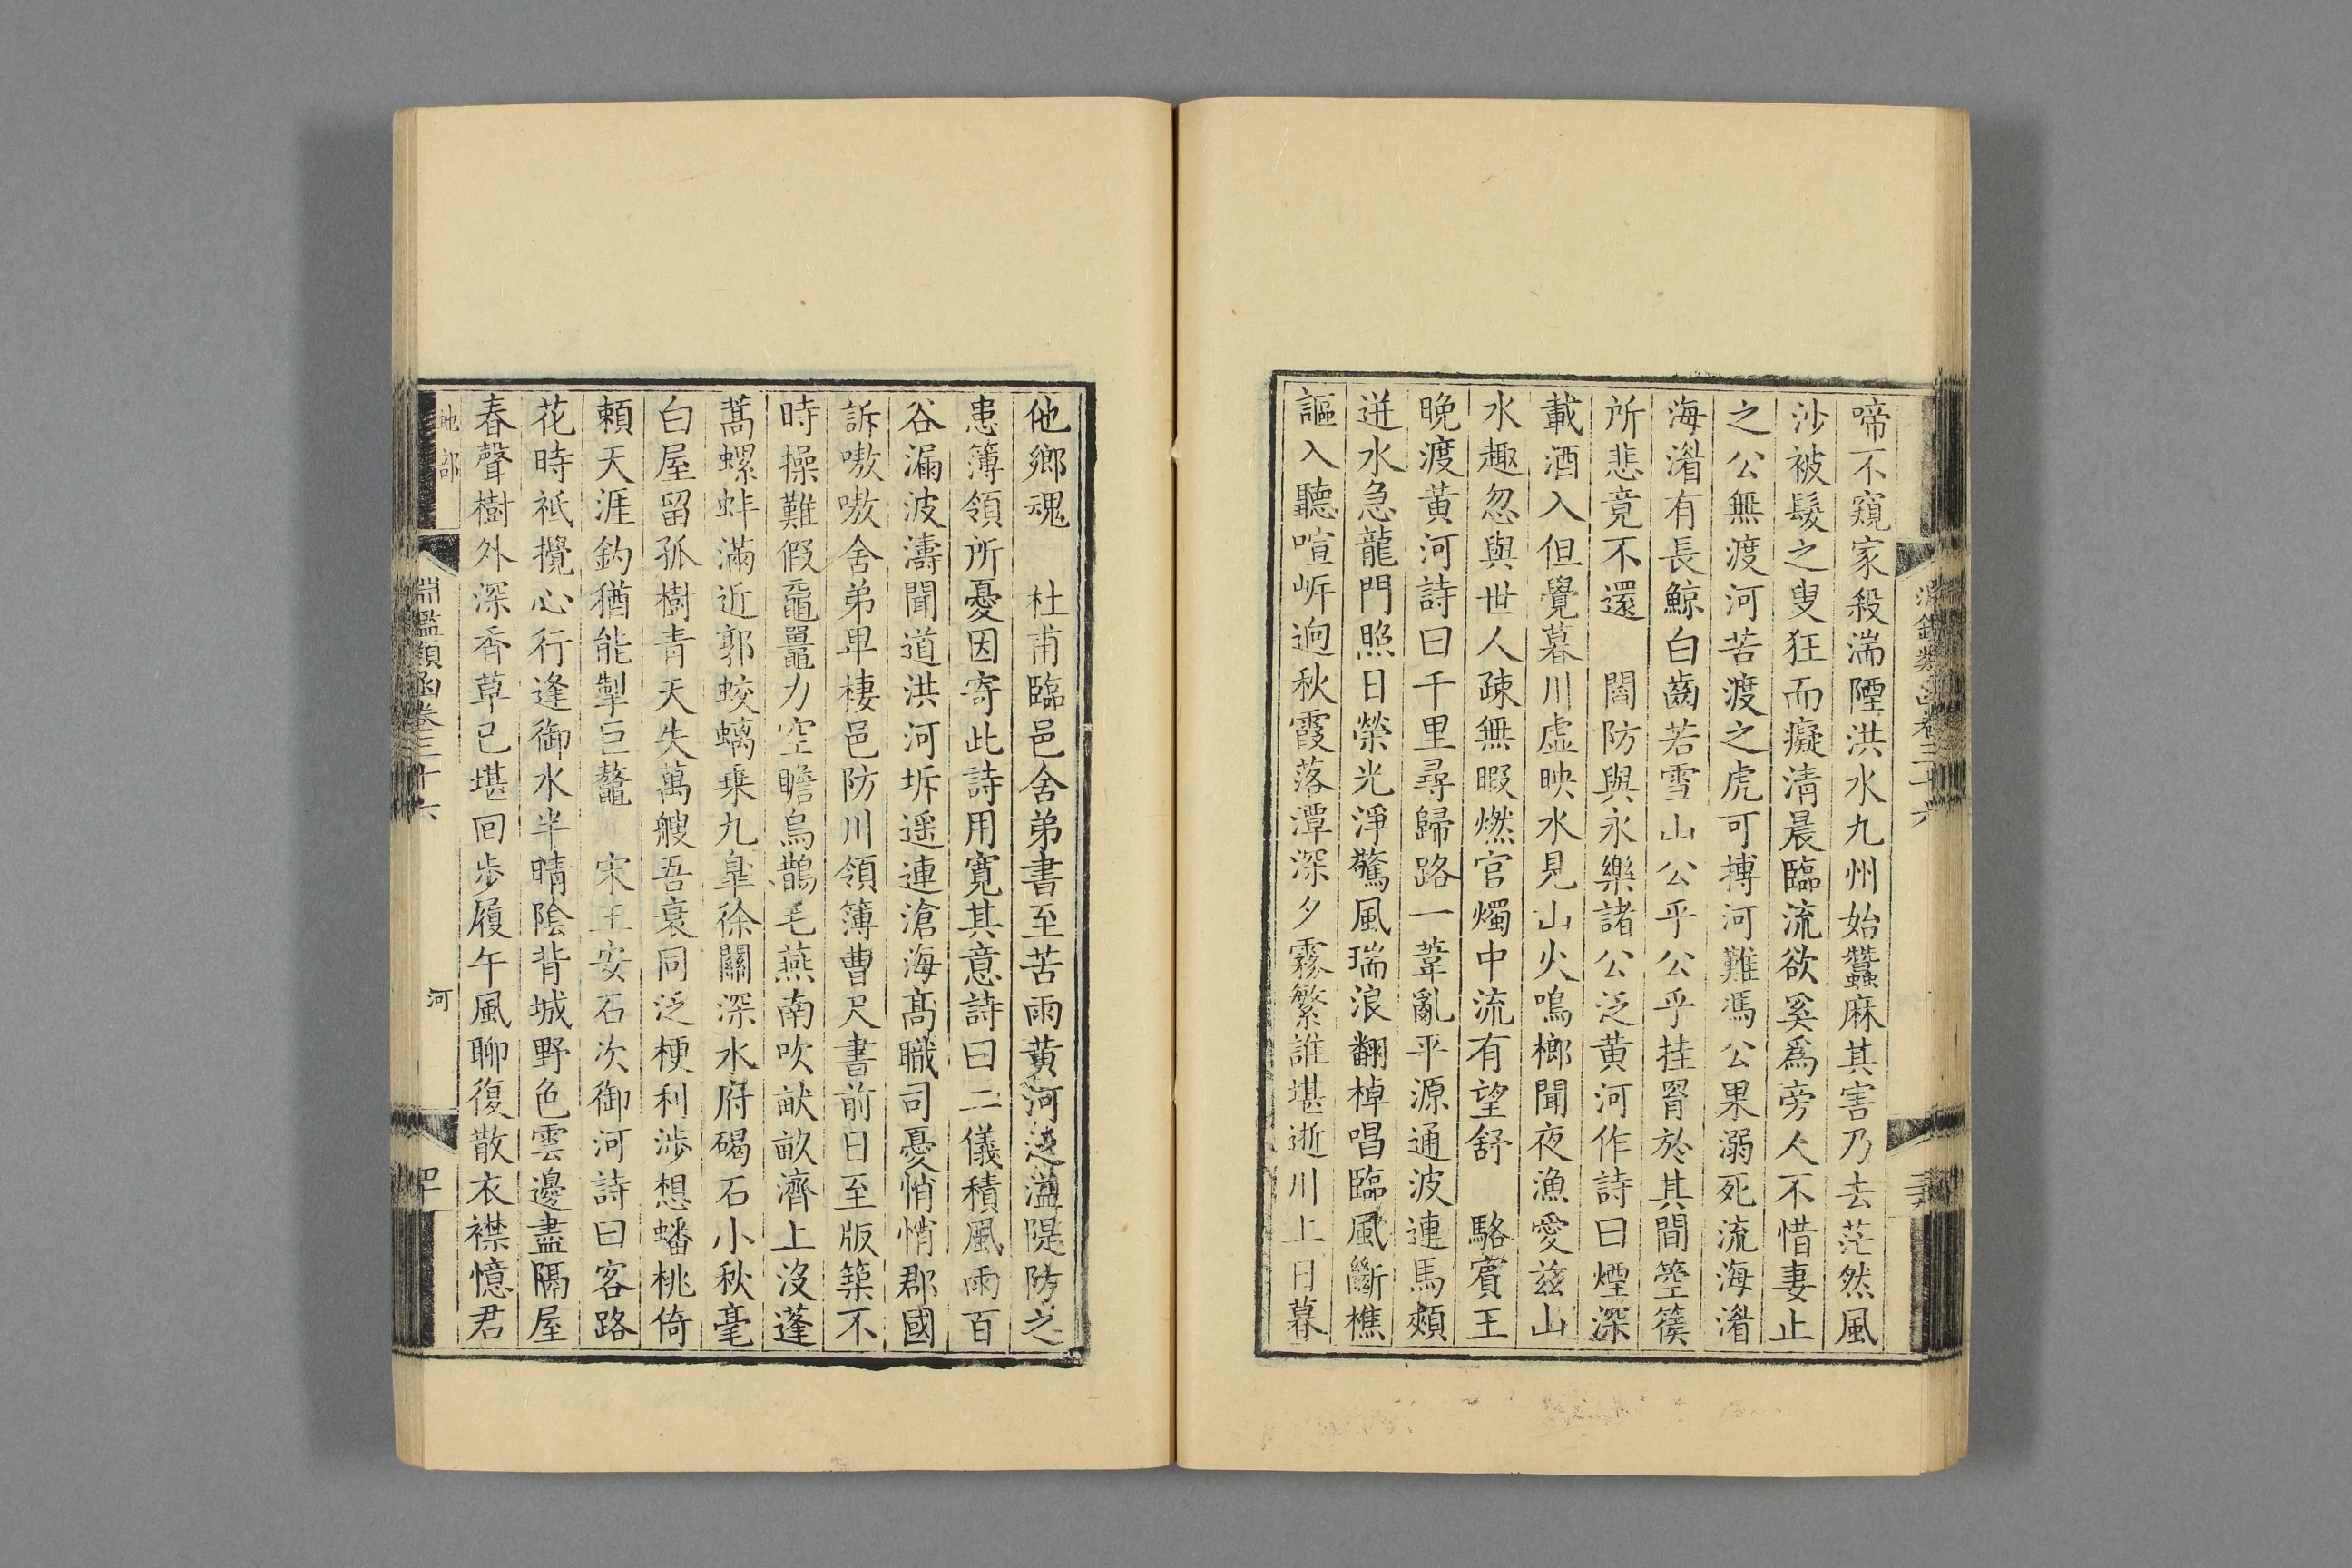 淵鑑類函卷三十六
啼不窺家殺湍陻洪水九州始蠶麻其害乃去茫然風
沙被髮之叟狂而癡淸晨臨流欲奚爲旁人不惜妻止
之公無渡河苦渡之虎可搏河難馮公果溺死流海湄
海湄有長鯨白齒若雪山公乎公乎挂罥於其間箜篌
所悲竟不還　閻防與永樂諸公泛黄河作詩曰煙深
載酒入但覺暮川虛映水見山火鳴榔聞夜漁愛兹山
水趣忽與世人疎無暇燃官燭中流有望舒　駱賓王
晚渡黄河詩曰千里尋歸路一葦亂平源通波連馬頰
迸水急龍門照日榮光淨驚風瑞浪翻棹唱臨風斷樵
謳入聽喧岸迥秋霞落潭深夕霧繁誰堪逝川上日暮
他鄉魂　杜甫臨邑舍弟書至苦雨黄河泛溢隄防之
患簿領所憂因寄此詩用寛其意詩曰二儀積風雨百
谷漏波濤聞道洪河坼遥連滄海髙職司憂悄悄郡國
訴嗷嗷舍弟卑棲邑防川領簿曹尺書前日至版築不
時操難假黿鼉力空瞻烏鵲毛燕南吹畎畝濟上沒蓬
蒿螺蚌滿近郭蛟螭乗九臯徐關深水府碣石小秋毫
白屋留孤樹靑天失萬艘吾衰同泛梗利渉想蟠桃倚
賴天涯釣猶能掣巨鼇　宋王安石次御河詩曰客路
花時祇攪心行逢御水半晴陰背城野色雲邊盡隔屋
春聲樹外深香草已堪囘步履午風聊復散衣襟憶君
地部　淵鑑類函卷三十六　河